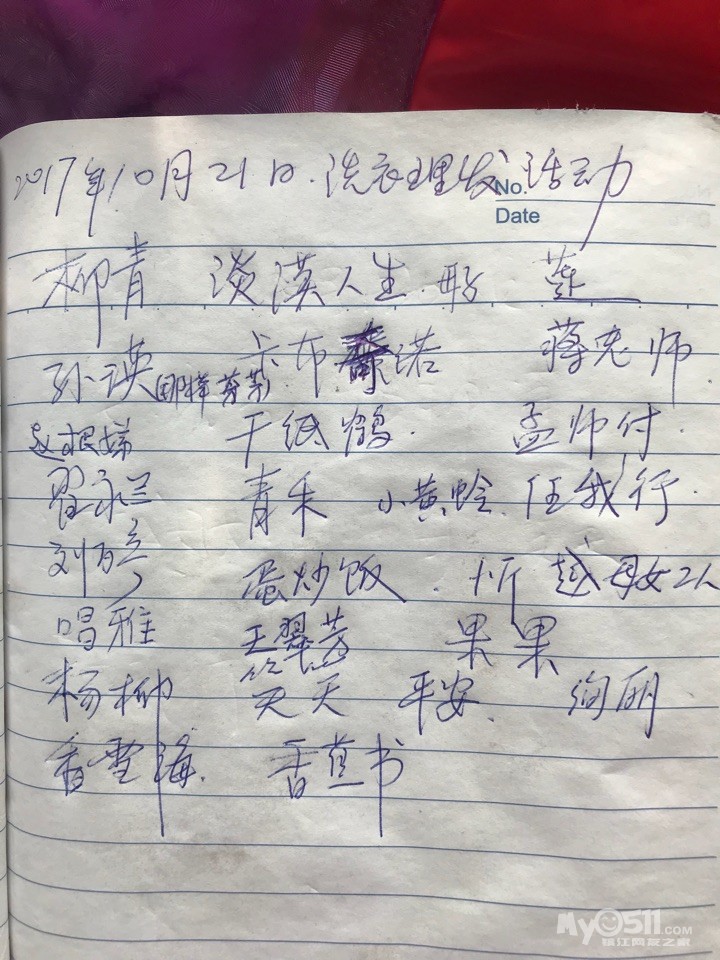 2017年10月21日.洗衣理发活动
No.
Date
柳青 淡漠人生 彤 莲
孙瑛 那样芬芳 卡布诺 蒋老师
赵根娣 千纸鹤. 孟师付.
翟永兰 青禾 小黄蛉. 任我行.
刘 蛋炒饭. 忻越母女2人
唱雅 王翠芳 果果
杨柳 天天 平安. 绚丽
香雪海. 香蕉书
My0511.COM
镇江网友之家